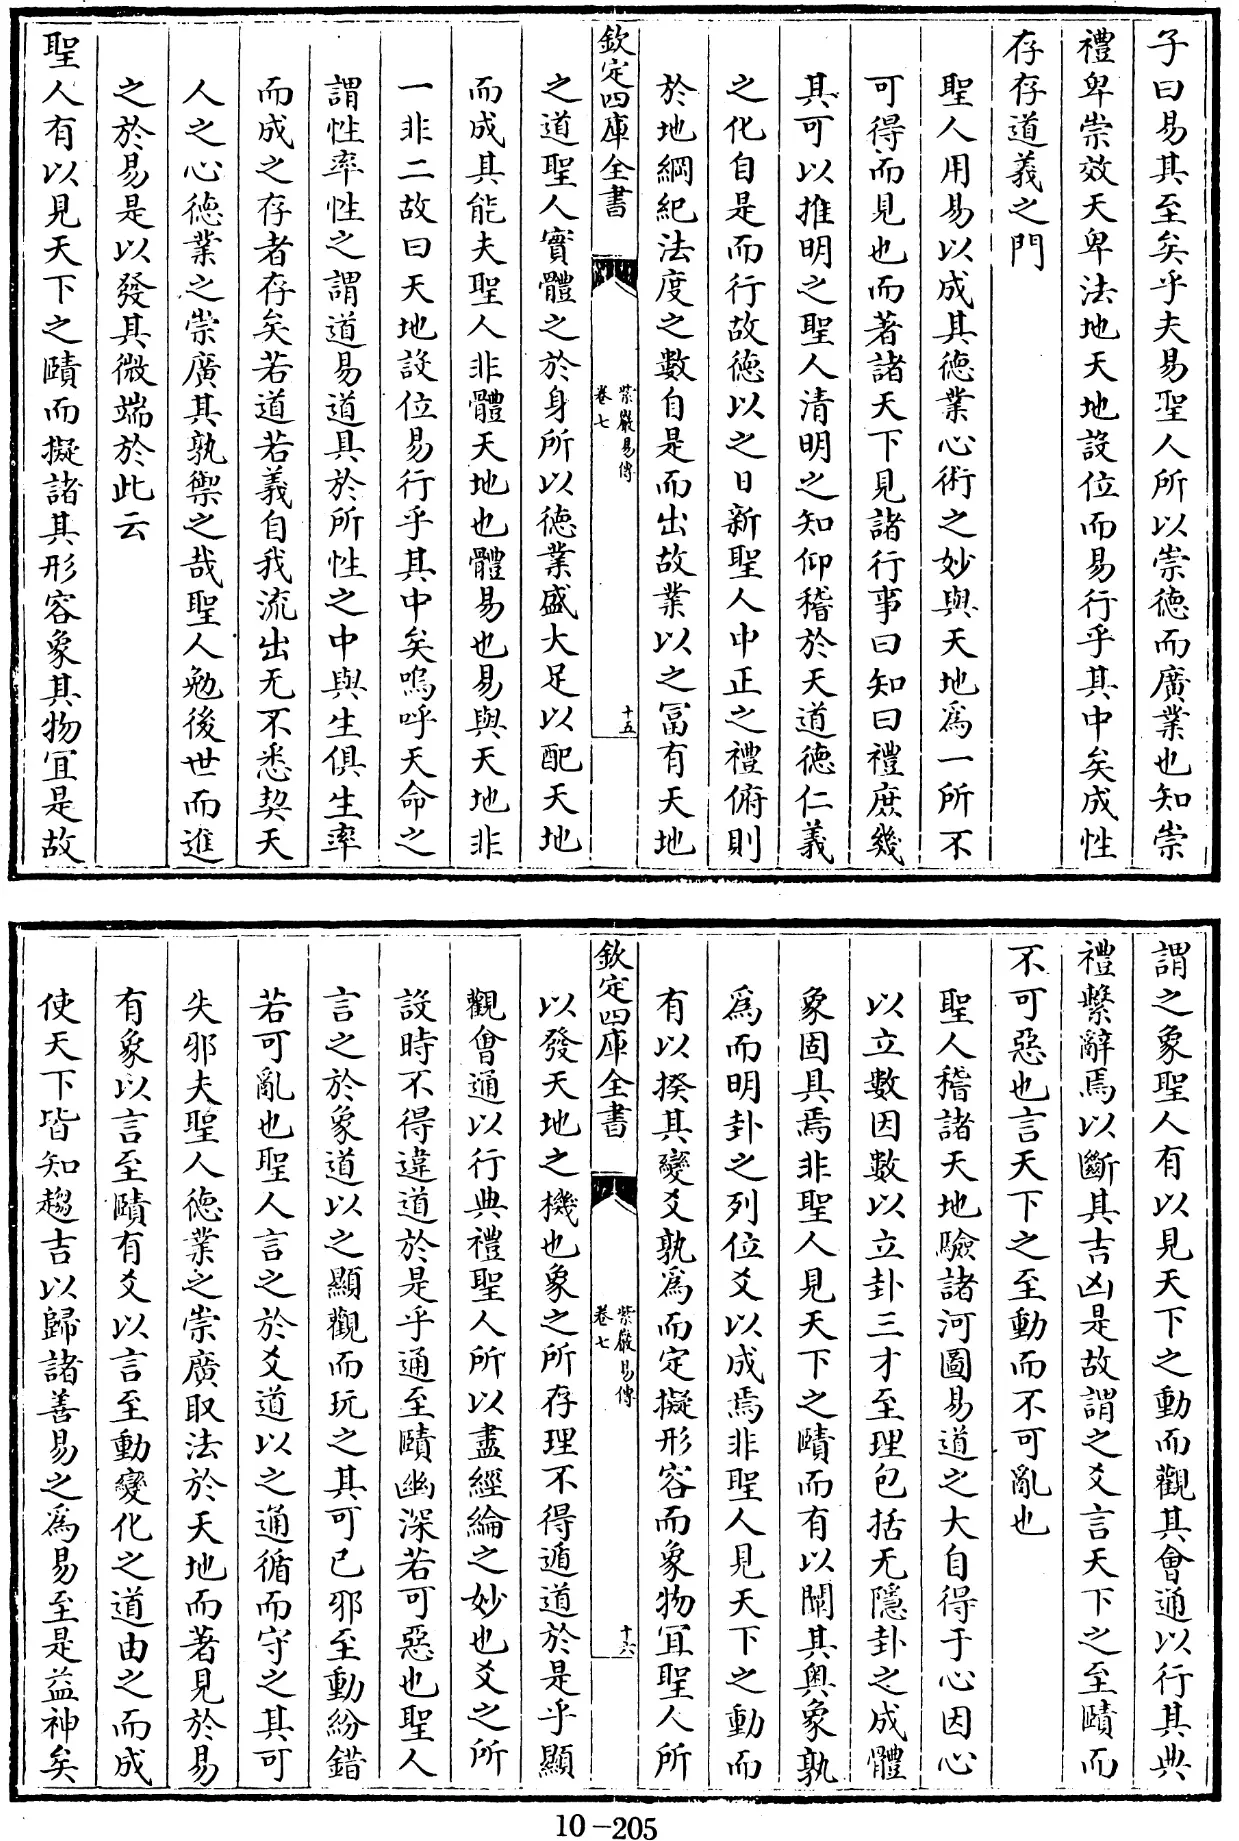 子曰易其至矣乎夫易聖人所以崇德而廣業也知崇
禮卑崇效天卑法地天地設位而易行乎其中矣成性
存存道義之門
聖人用易以成其德業心術之妙與天地爲一所不
可得而見也而著諸天下見諸行事曰知曰禮庶幾
其可以推明之聖人清明之知仰稽於天道德仁義
之化自是而行故德以之日新聖人中正之禮俯則
於地綱紀法度之數自是而出故業以之富有天地
欽定四庫全書
紫巖易傳
卷七
十五
之道聖人實體之於身所以德業盛大足以配天地
而成其能夫聖人非體天地也體易也易與天地非
一非二故曰天地設位易行乎其中矣嗚呼天命之
謂性率性之謂道易道具於所性之中與生俱生率
而成之存者存矣若道若義自我流出无不悉契天
人之心德業之崇廣其孰禦之哉聖人勉後世而進
之於易是以發其微端於此云
聖人有以見天下之賾而擬諸其形容象其物宜是故
謂之象聖人有以見天下之動而觀其會通以行其典
禮繫辭焉以斷其吉凶是故謂之爻言天下之至賾而
不可惡也言天下之至動而不可亂也
聖人稽諸天地驗諸河圖易道之大自得于心因心
以立數因數以立卦三才至理包括无隱卦之成體
象固具焉非聖人見天下之賾而有以闡其奧象孰
爲而明卦之列位爻以成焉非聖人見天下之動而
有以揆其變爻孰爲而定擬形容而象物宜聖人所
欽定四庫全書
紫巖易傳
卷七
十六
以發天地之機也象之所存理不得遁道於是乎顯
觀會通以行典禮聖人所以盡經綸之妙也爻之所
設時不得違道於是乎通至賾幽深若可惡也聖人
言之於象道以之顯觀而玩之其可已邪至動紛錯
若可亂也聖人言之於爻道以之通循而守之其可
失邪夫聖人德業之崇廣取法於天地而著見於易
有象以言至賾有爻以言至動變化之道由之而成
使天下皆知趨吉以歸諸善易之爲易至是益神矣
10-205